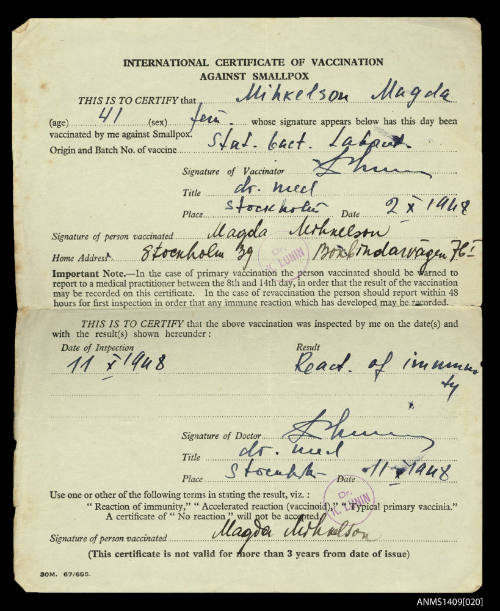 INTERNATIONAL CERTIFICATE OF VACCINATION
AGAINST SMALLPOX
THIS IS TO CERTIFY that Mihkelson Magda
(age) 41 (sex) fem. whose signature appears below has this day been
vaccinated by me against Smallpox.
Origin and Batch No. of vaccine Stat. bact. Laborat.
Signature of Vaccinator
Title dr. med
Place Stockholm Date 2 X 1948
Signature of person vaccinated Magda Mihkelson
Home Address Stockholm 39
Important Note.—In the case of primary vaccination the person vaccinated should be warned to
report to a medical practitioner between the 8th and 14th day, in order that the result of the vaccination
may be recorded on this certificate. In the case of revaccination the person should report within 48
hours for first inspection in order that any immune reaction which has developed may be recorded.
THIS IS TO CERTIFY that the above vaccination was inspected by me on the date(s) and
with the result(s) shown hereunder :
Date of Inspection Result
11 X 1948 React. of immuni
ty
Signature of Doctor
Title dr. med
Place Stockholm Date 11 X 1948
Dr.
K. LUNIN
Use one or other of the following terms in stating the result, viz. :
“ Reaction of immunity,” “ Accelerated reaction (vaccinoid),” “ Typical primary vaccinia.”
A certificate of “ No reaction ” will not be accepted.
Signature of person vaccinated Magda Mihkelson
(This certificate is not valid for more than 3 years from date of issue)
30M. 67/655.
ANMS1409[020]